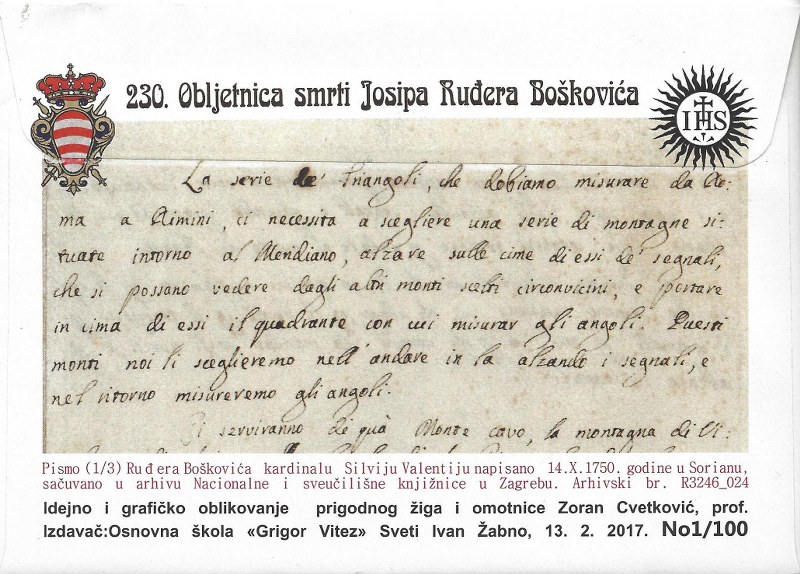 230. Obljetnica smrti Josipa Ruđera Boškovića
IHS
La serie de' Triangoli, che dobiamo misurare da Ro:
ma a Rimini, ci necessita a scegliere una serie di montagne si:
tuate intorno al Meridiano, alzare sulle cime di essi de' segnali,
che si possano vedere dagli altri monti scelti circonvicini, e portare
in cima di essi il quadrante con cui misurar gli angoli. Questi
monti noi li sceglieremo nell'andare in la alzando i segnali, e
nel ritorno misureremo gli angoli.
Ci serviranno di quà Monte cavo, la montagna di Vi:
Pismo (1/3) Ruđera Boškovića kardinalu Silviju Valentiju napisano 14.X.1750. godine u Sorianu,
sačuvano u arhivu Nacionalne i sveučilišne knjižnice u Zagrebu. Arhivski br. R3246_024
Idejno i grafičko oblikovanje prigodnog žiga i omotnice Zoran Cvetković, prof.
Izdavač:Osnovna škola «Grigor Vitez» Sveti Ivan Žabno, 13. 2. 2017. No1/100